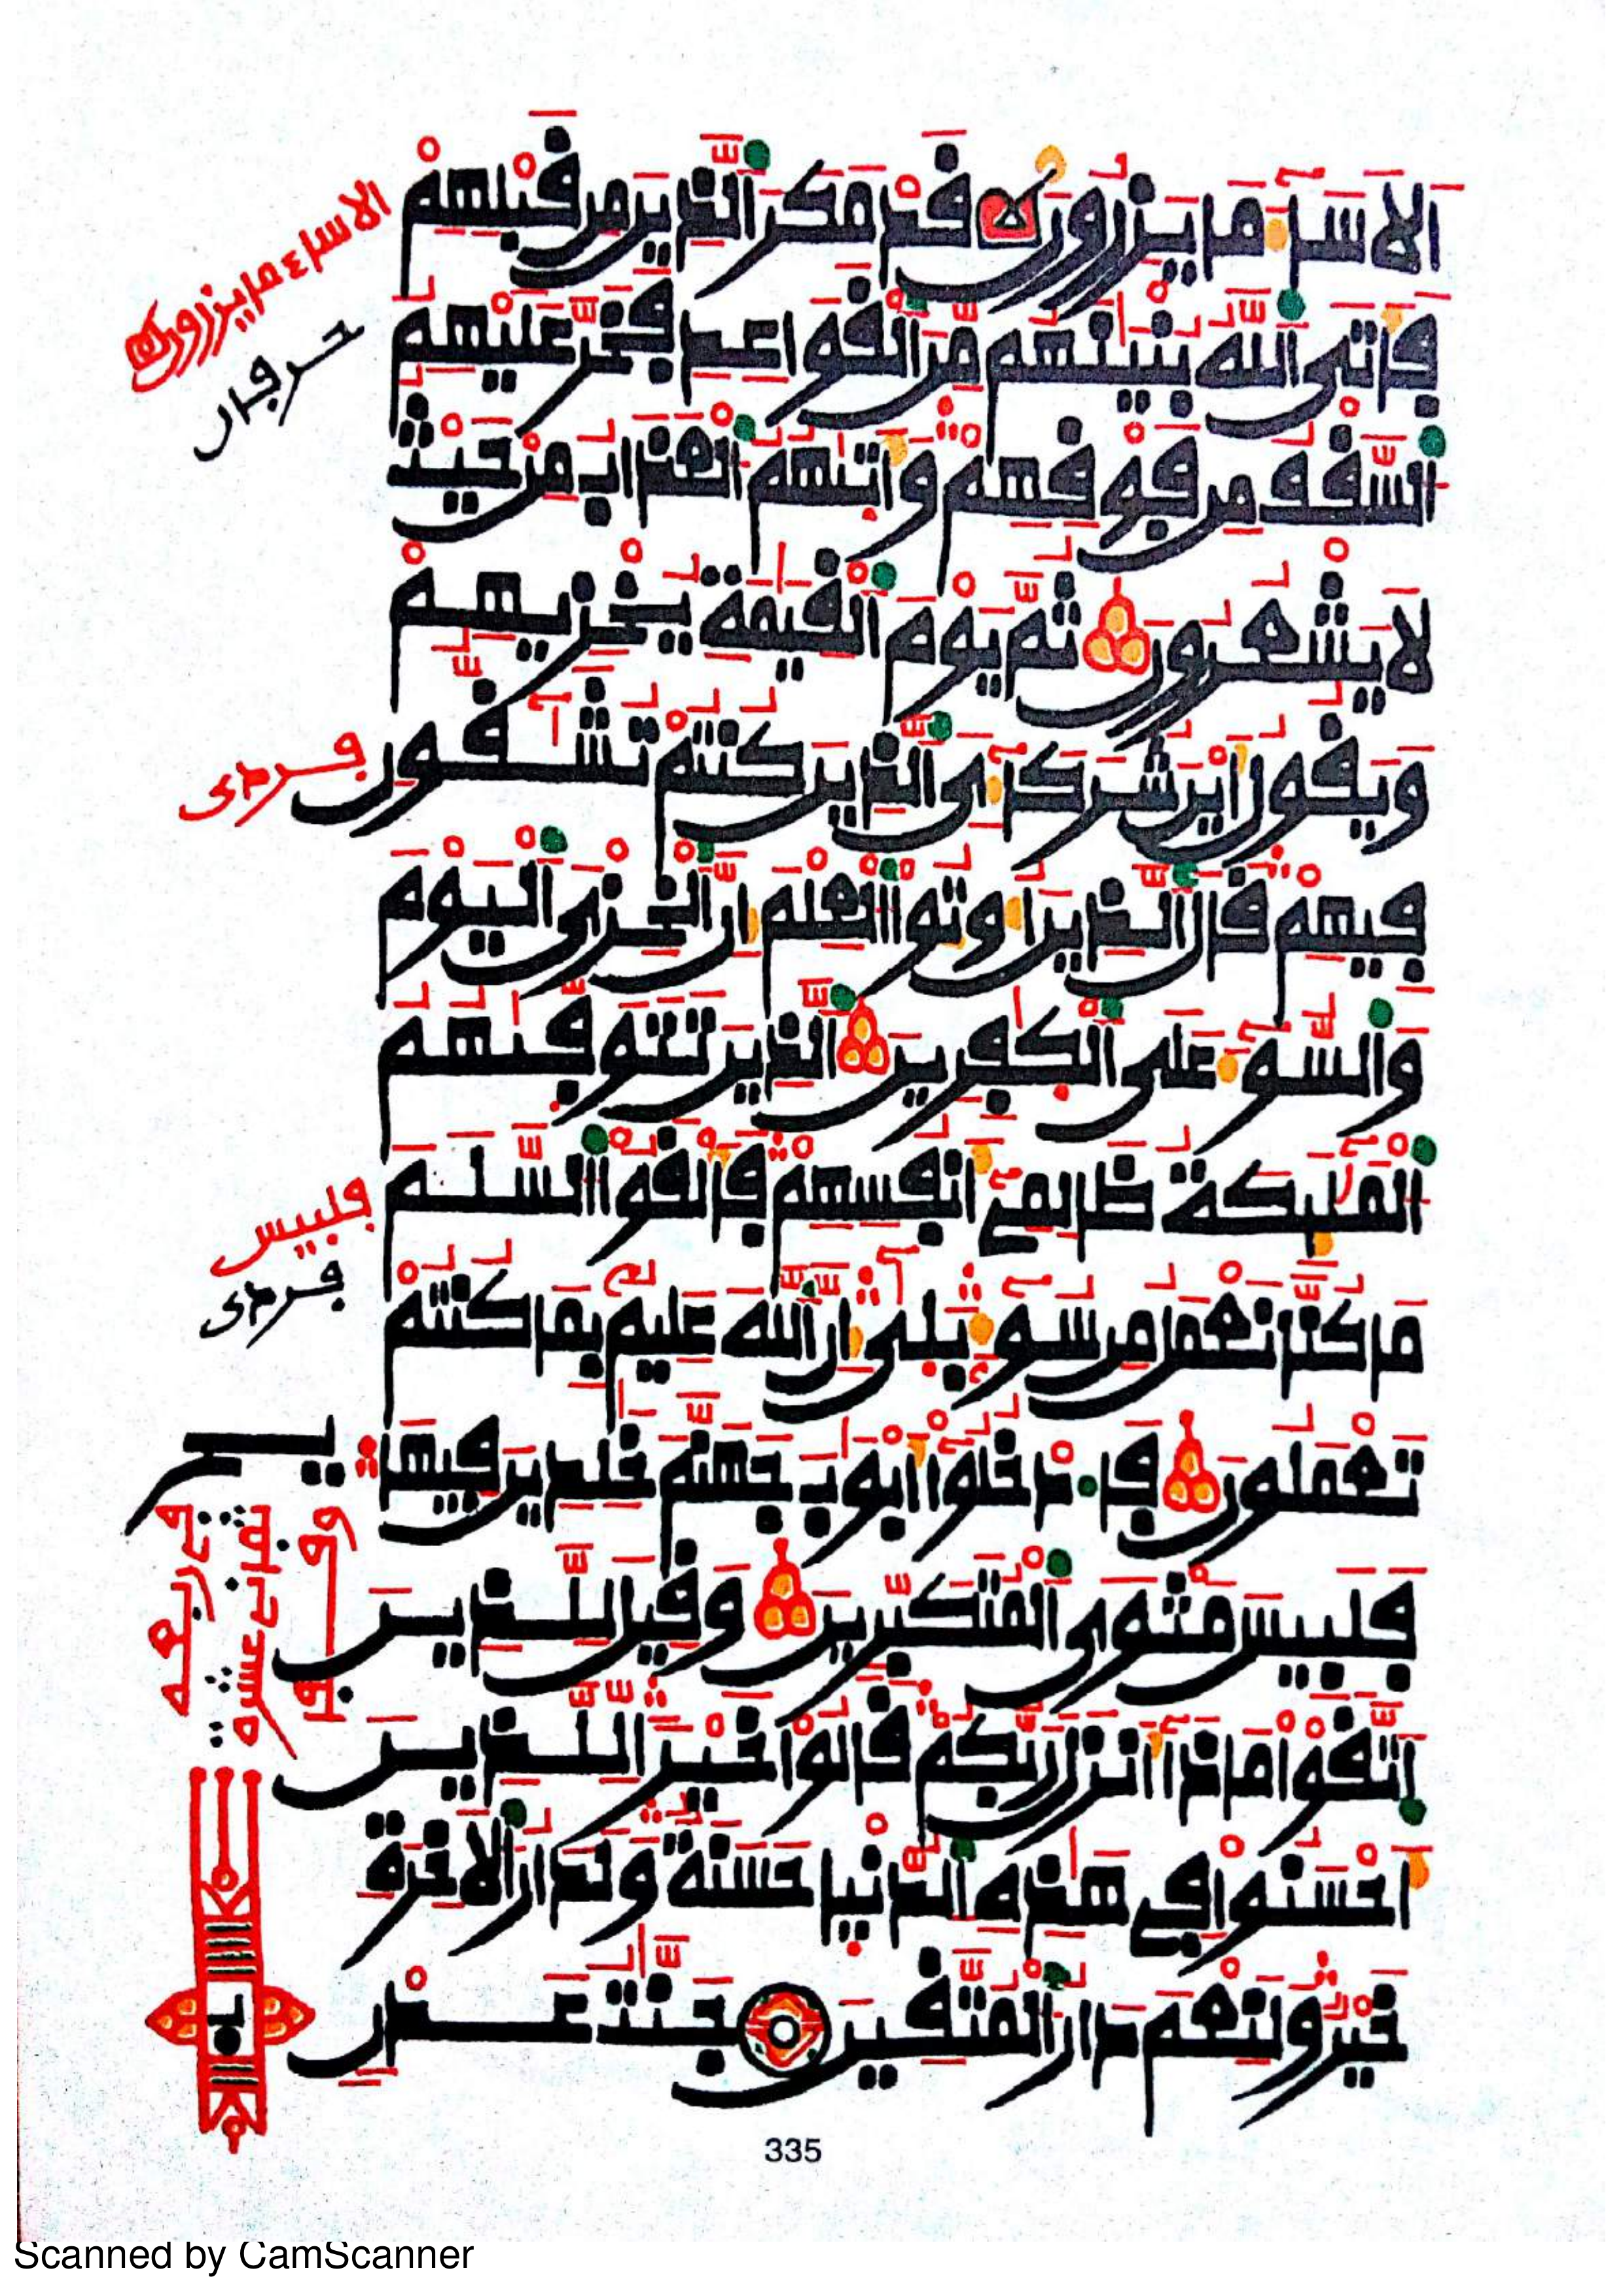 أَلَا سَآءَ مَا يَزِرُونَ قَدْ مَكَرَ ٱلَّذِينَ مِن قَبْلِهِمْ
فَأَتَى ٱللَّهُ بُنْيَٰنَهُم مِّنَ ٱلْقَوَاعِدِ فَخَرَّ عَلَيْهِمُ
ٱلسَّقْفُ مِن فَوْقِهِمْ وَأَتَىٰهُمُ ٱلْعَذَابُ مِنْ حَيْثُ
لَا يَشْعُرُونَ ثُمَّ يَوْمَ ٱلْقِيَٰمَةِ يُخْزِيهِمْ
وَيَقُولُ أَيْنَ شُرَكَآءِىَ ٱلَّذِينَ كُنتُمْ تُشَٰٓقُّونِ
فِيهِمْ قَالَ ٱلَّذِينَ أُوتُوا۟ ٱلْعِلْمَ إِنَّ ٱلْخِزْىَ ٱلْيَوْمَ
وَٱلسُّوٓءَ عَلَى ٱلْكَٰفِرِينَ ٱلَّذِينَ تَتَوَفَّىٰهُمُ
ٱلْمَلَٰٓئِكَةُ ظَالِمِىٓ أَنفُسِهِمْ فَأَلْقَوُا۟ ٱلسَّلَمَ
مَا كُنَّا نَعْمَلُ مِن سُوٓءٍۭ بَلَىٰٓ إِنَّ ٱللَّهَ عَلِيمٌۢ بِمَا كُنتُمْ
تَعْمَلُونَ فَٱدْخُلُوٓا۟ أَبْوَٰبَ جَهَنَّمَ خَٰلِدِينَ فِيهَا
فَلَبِيسَ مَثْوَى ٱلْمُتَكَبِّرِينَ وَقِيلَ لِلَّذِينَ
ٱتَّقَوْا۟ مَاذَآ أَنزَلَ رَبُّكُمْ قَالُوا۟ خَيْرًا لِّلَّذِينَ
أَحْسَنُوا۟ فِى هَٰذِهِ ٱلدُّنْيَا حَسَنَةٌ وَلَدَارُ ٱلْأَخِرَةِ
خَيْرٌ وَلَنِعْمَ دَارُ ٱلْمُتَّقِينَ جَنَّٰتُ عَدْنٍ
الاساء مايزرون
فلبيس
335
Scanned by CamScanner